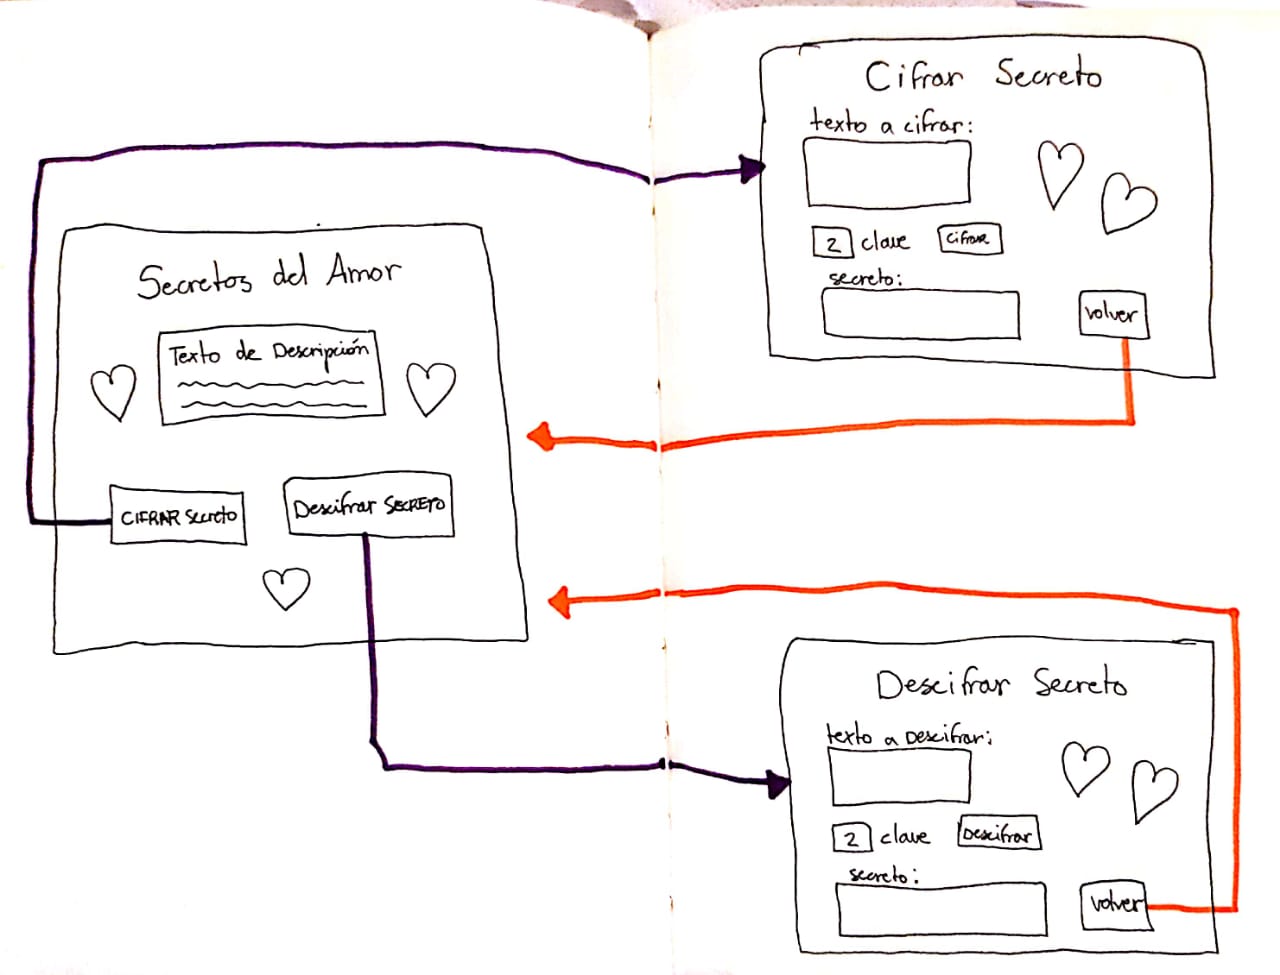 Secretos del Amor
Texto de Descripción
CIFRAR Secreto
Descifrar SECRETO
Cifrar Secreto
texto a cifrar:
2 clave cifrar
secreto:
volver
Descifrar Secreto
texto a Descifrar:
2 clave Descifrar
secreto:
volver